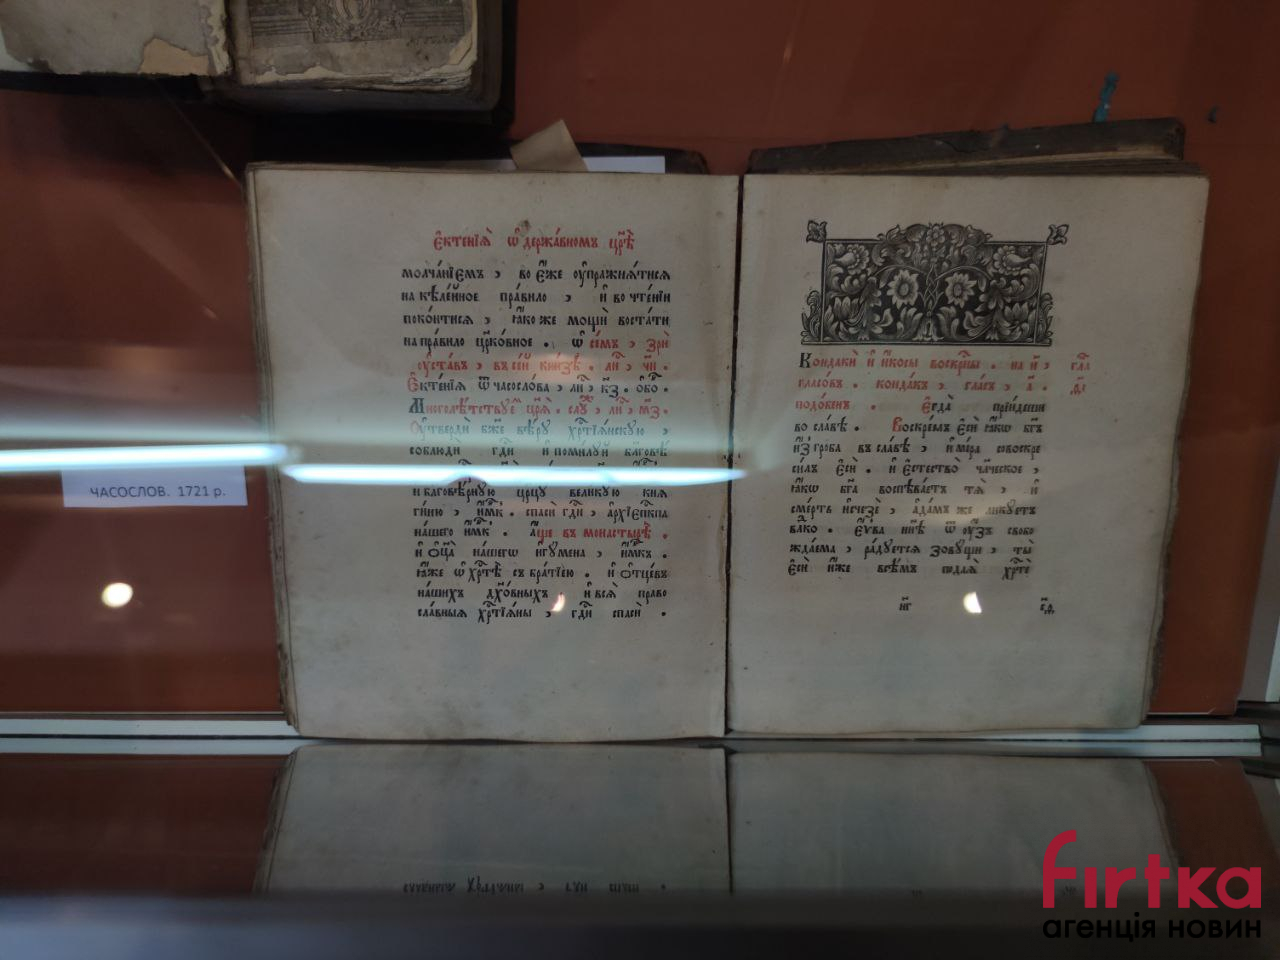 Є҆ктенїѧ̀ ѡ҆ держа́вномъ цр҃ѣ̀
молча́нїемъ , во є҆́же ᲂу҆пражнѧ́тисѧ
на кѣле́йное пра́вило , и҆ во чте́нїи
поко́итисѧ , ꙗ҆́коже мощѝ воста́ти
на пра́вило цр҃ко́вное . ѡ҆ се́мъ , зрѝ
ᲂу҆ста́въ , въ се́й кни́зѣ . ли҃ , чн҃ .
Є҆ктенїѧ̀ ѿ часосло́ва , ли҃ , кз҃ .
Многолѣ́тствꙋе
Оу҆твердѝ бж҃е вѣ́рꙋ хрⷭ҇тїѧ́нскꙋю ,
соблюдѝ гдⷭ҇и и҆ поми́лꙋй бл҃говѣ́
и҆ бл҃говѣ́рнꙋю цр҃цꙋ вели́кꙋю кнѧ
ги́ню , и҆́мⷬ҇къ . спасѝ гдⷭ҇и , а҆рхїепⷭ҇кпа
на́шего и҆́мⷬ҇къ . а҆́ще въ монастырѣ̀ .
и҆ ѻ҆ц҃а̀ на́шегѡ и҆гꙋ́мена , и҆́мⷬ҇къ .
ꙗ҆́же ѡ҆ хрⷭ҇тѣ̀ съ бра́тїею . и҆ ѻ҆тцє́въ
на́шихъ дх҃о́вныхъ , и҆ всѧ̀ право
сла́вныѧ хрⷭ҇тїѧ́ны , гдⷭ҇и спасѝ .
Кондакѝ и҆ и҆́косы воскрⷭ҇ны . на и҃ ,
гласо́въ . конда́къ , гла́съ , а҃ .
подо́бенъ . Є҆гда̀ прїи́деши
во сла́вѣ . Воскре́слъ є҆сѝ ꙗ҆́кѡ бг҃ъ
и҆з̾ гро́ба въ сла́вѣ , и҆ мі́ра совоскре
си́лъ є҆сѝ . и҆ є҆стество̀ чл҃ческое ,
ꙗ҆́кѡ бг҃а воспѣва́етъ тѧ̀ , и҆
сме́рть и҆счезѐ , а҆да́мъ же ликꙋ́етъ
вл҃ко . є҆́ѵва нн҃ѣ ѿ ᲂу҆́зъ свобо
жда́ема , ра́дꙋетсѧ зовꙋ́щи , ты̀
є҆сѝ и҆́же всѣ́мъ подаѧ̀ хрⷭ҇тѐ
ЧАСОСЛОВ. 1721 р.
firtka
агенція новин